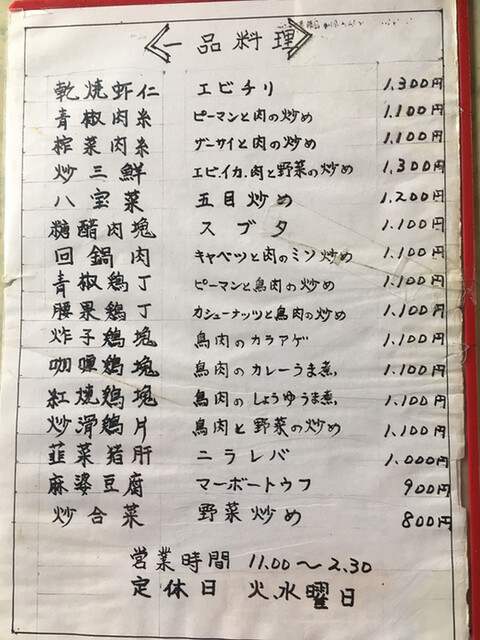 一品料理
乾焼虾仁 エビチリ 1,300円
青椒肉糸 ピーマンと肉の炒め 1,100円
榨菜肉糸 ザーサイと肉の炒め 1,100円
炒三鮮 エビ.イカ.肉と野菜の炒め 1,300円
八宝菜 五目炒め 1,200円
糖醋肉塊 スブタ 1,100円
回鍋肉 キャベツと肉のミソ炒め 1,100円
青椒鶏丁 ピーマンと鳥肉の炒め 1,100円
腰果鶏丁 カシューナッツと鳥肉の炒め 1,100円
炸子鶏塊 鳥肉のカラアゲ 1,100円
咖喱鶏塊 鳥肉のカレーうま煮 1,100円
紅焼鶏塊 鳥肉のしょうゆうま煮 1,100円
炒滑鶏片 鳥肉と野菜の炒め 1,100円
韮菜猪肝 ニラレバ 1,000円
麻婆豆腐 マーボートウフ 900円
炒合菜 野菜炒め 800円
営業時間 11.00〜2.30
定休日 火.水曜日